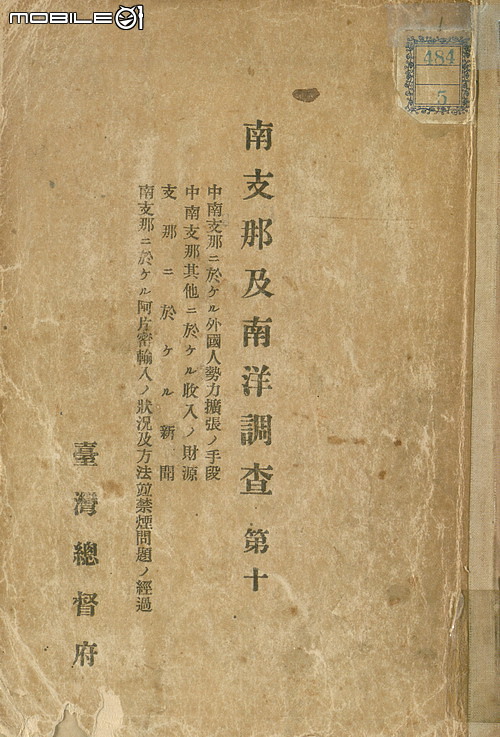 MOBILE01
484
5
南支那及南洋調査 第十
中南支那ニ於ケル外國人勢力擴張ノ手段
中南支那其他ニ於ケル收入ノ財源
支那ニ於ケル新聞
南支那ニ於ケル阿片密輸入ノ狀況及方法竝禁煙問題ノ經過
臺灣總督府